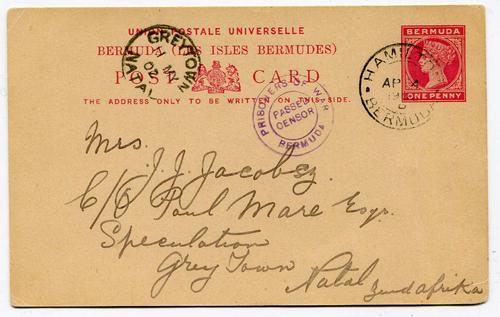 UNION POSTALE UNIVERSELLE
BERMUDA (LES ISLES BERMUDES)
POST CARD
THE ADDRESS ONLY TO BE WRITTEN ON THIS SIDE.
BERMUDA
ONE PENNY
GREYTOWN
NATAL
PRISONERS OF WAR
PASSED
CENSOR
BERMUDA
HAMILTON
AP
BERMUDA
Mrs.
J. J. Jacobsz
C/O Paul Mare Esqr.
Speculation
Grey Town
Natal
Zuidafrika